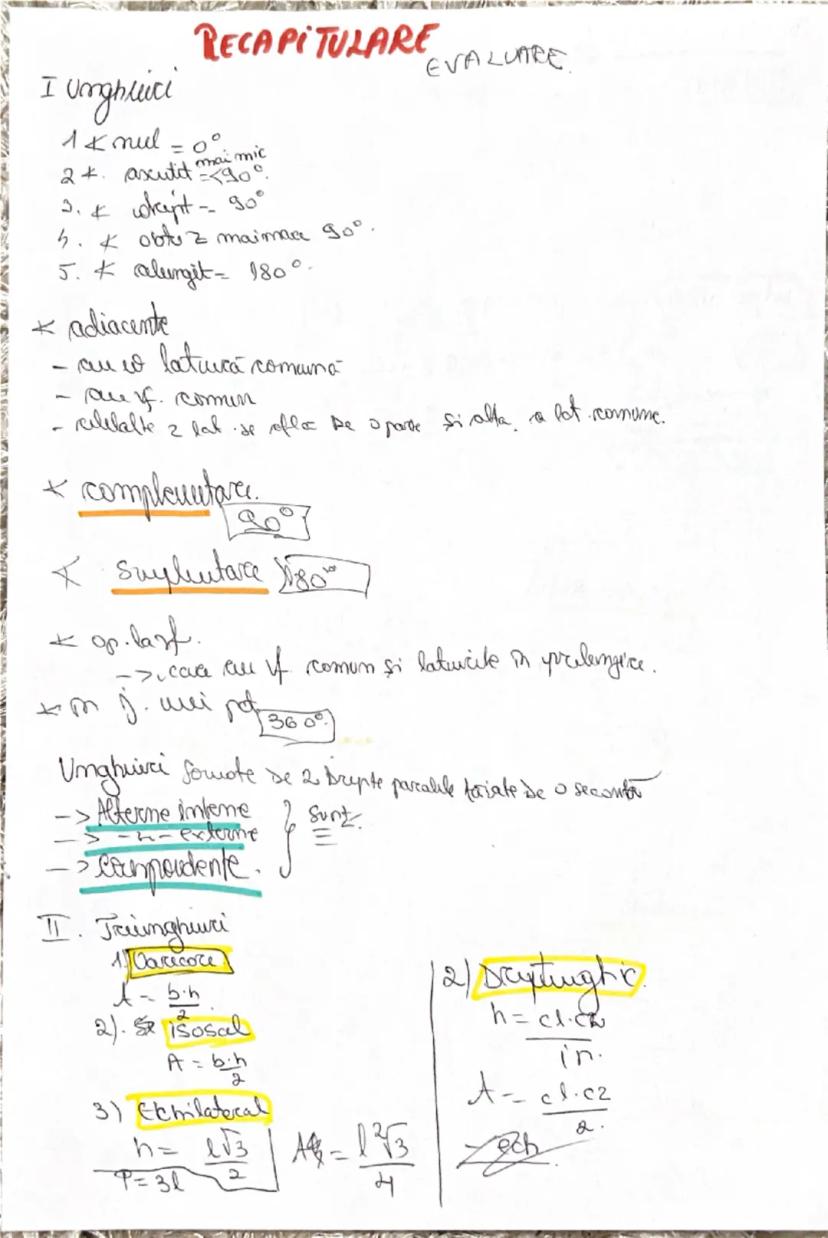 RECAPITULARE
EVALUARE.
I Unghiuri
1 ∢ nul = 0°
2 ∢. ascutit = mai mic <90°.
3. ∢ drept = 90°
4. ∢ obtuz mai mare 90°.
5. ∢ alungit = 180°.
∢ adiacente
- au o latură comună
- au vf. comun
- celelalte 2 lat. se afla de o parte și alta a lat. comune.
∢ complementare.
90°
∢ suplentare 180°
∢ op. la vf.
-> care au vf comun și laturile în prelungire.
∢ în j. unei pct 360°.
Unghiuri formate de 2 drepte paralele taiate de o secantă
-> Alterne interne
-> -"- externe
-> Corespondente.
} sunt ≡
II. Triunghiuri
1) Oarecare
A = b·h/2
2). isosal
A = b·h/2
3) Echilateral
h = l√3/2
P = 3l
A = l²√3/4
2) Dreptunghic
h = c1·c2/ip.
A = c1·c2/2.